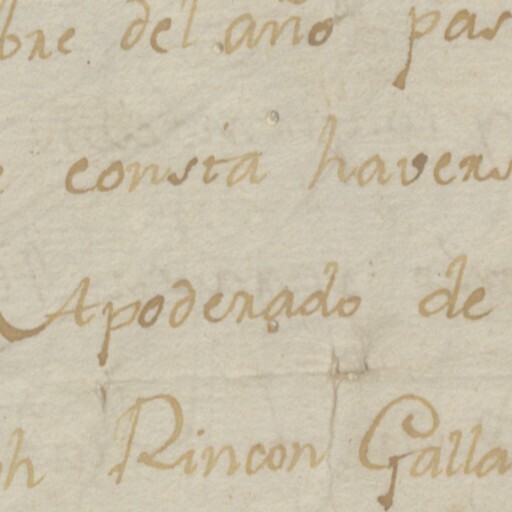 bre del año pas
e consta havers
Apoderado de
ph Rincon Galla